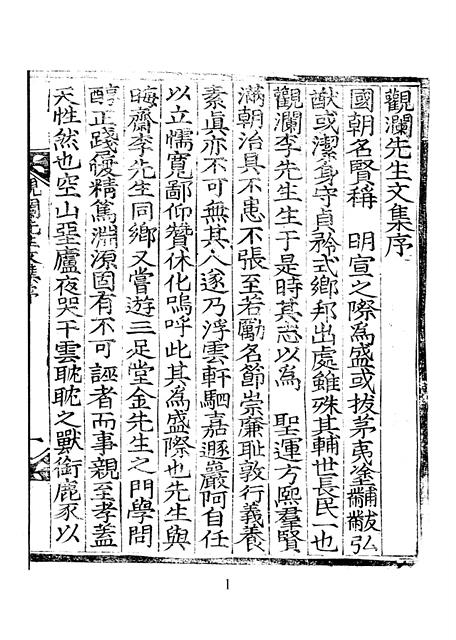 觀瀾先生文集序
國朝名賢稱 明宣之際為盛或拔茅夷塗黼黻弘
猷或潔身守貞矜式鄉邦出處雖殊其輔世長民一也
觀瀾李先生生于是時其志以為 聖運方熙羣賢
滿朝治具不患不張至若勵名節崇廉恥敦行義養
素真亦不可無其人遂乃浮雲軒駟嘉遯巖阿自任
以立懦寬鄙仰贊休化嗚呼此其為盛際也先生與
晦齋李先生同鄉又嘗遊三足堂金先生之門學問
醇正踐履精篤淵源固有不可誣者而事親至孝蓋
天性然也空山堊廬夜哭干雲耽耽之獸銜鹿豕以
觀瀾先生文集序
一
1